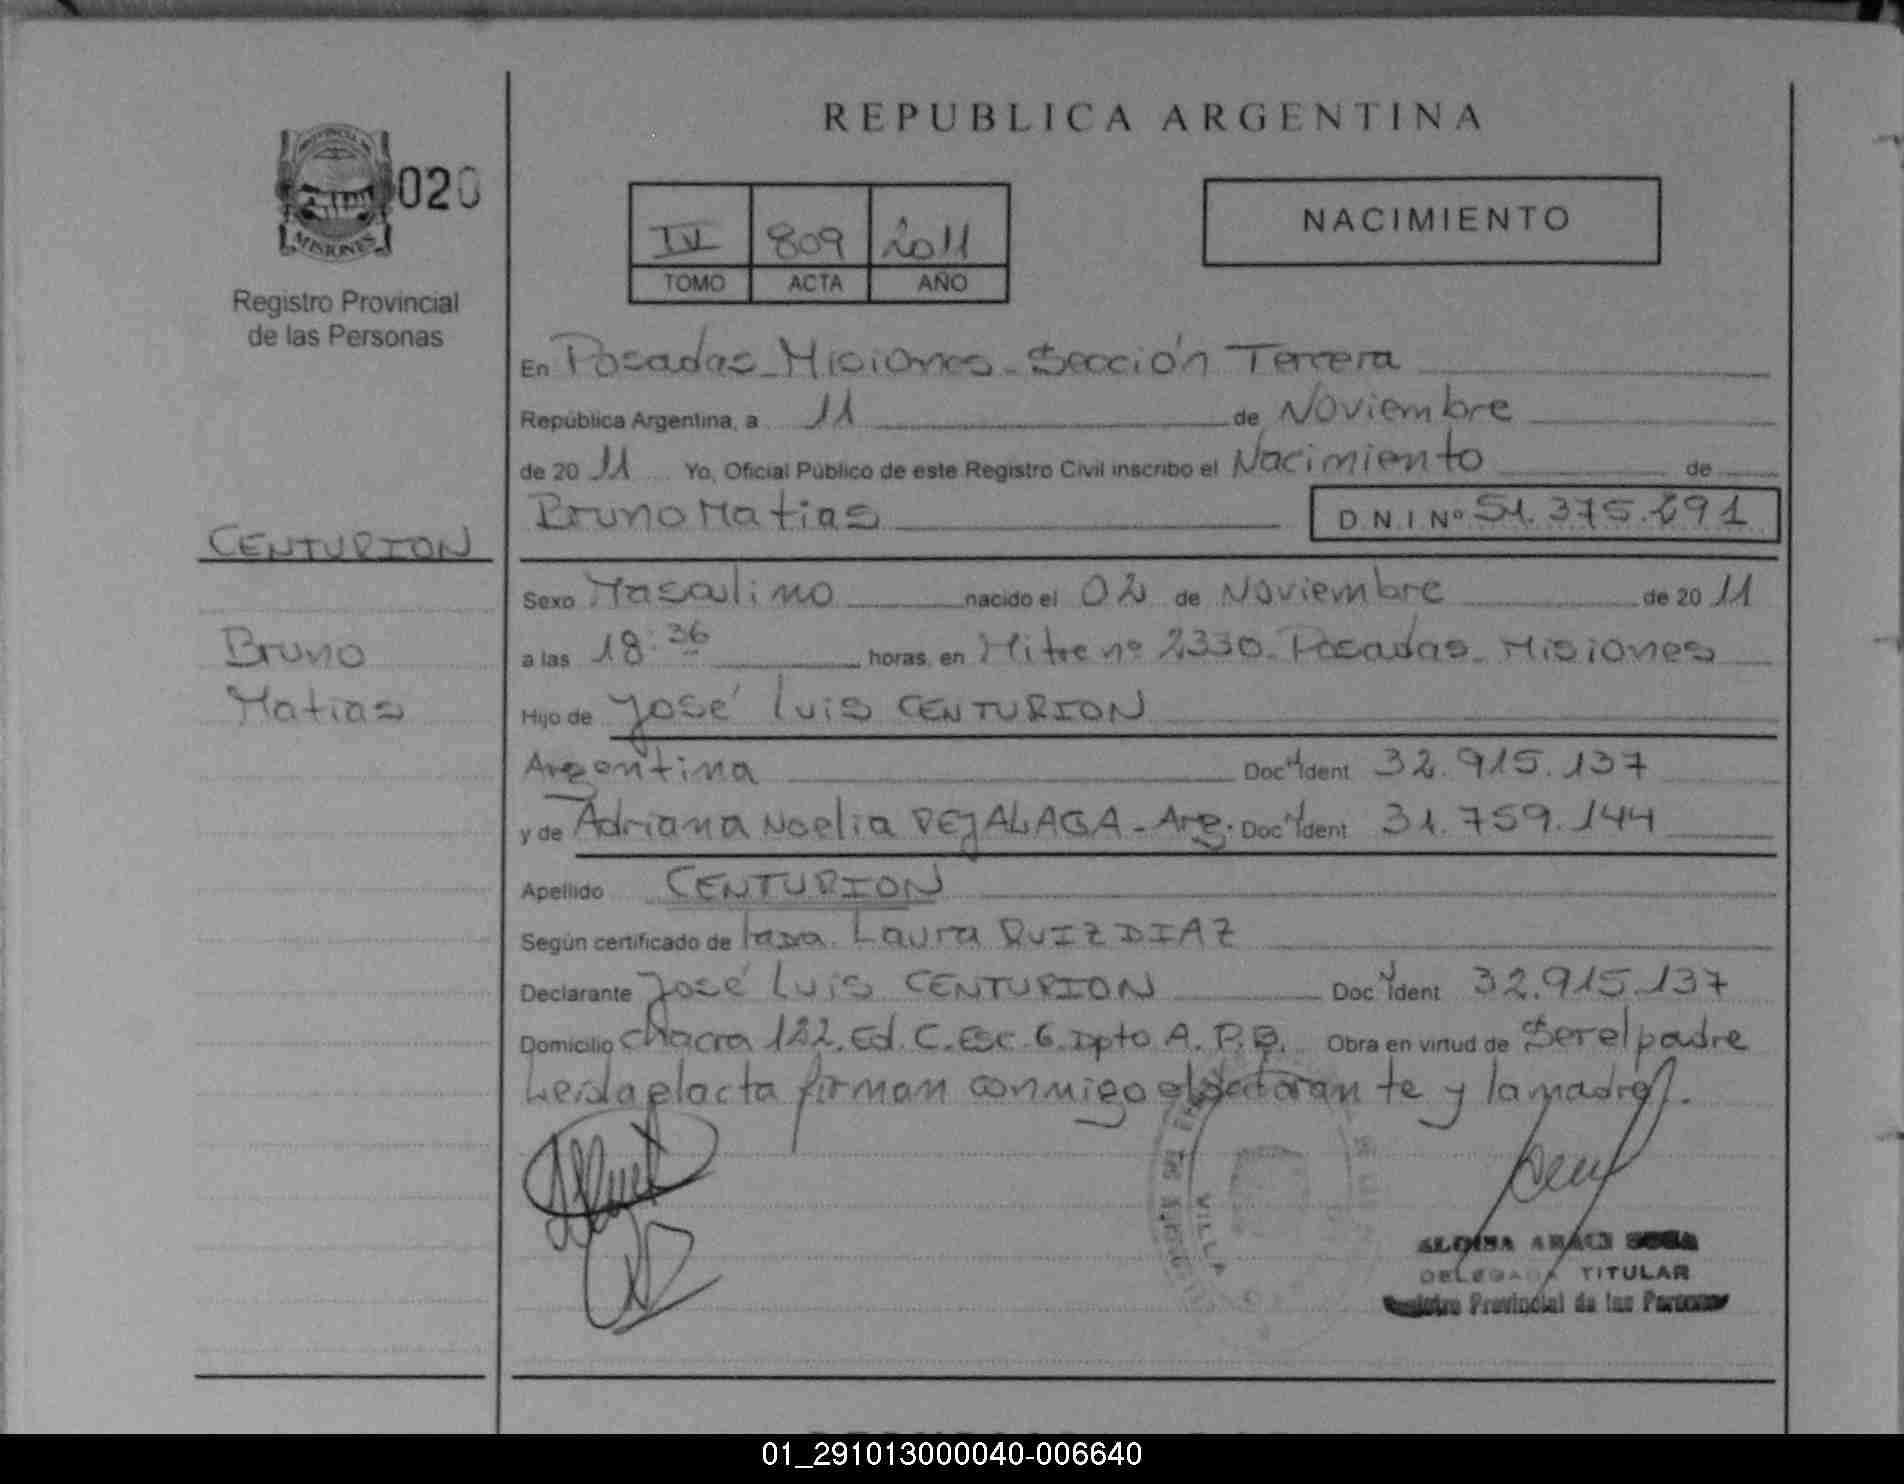 REPUBLICA ARGENTINA
PROVINCIA DE
MISIONES
020
Registro Provincial
de las Personas
IV 809 2011
TOMO ACTA AÑO
NACIMIENTO
En Posadas-Misiones-Sección Tercera
República Argentina, a 11 de Noviembre
de 20 11 Yo, Oficial Público de este Registro Civil inscribo el Nacimiento de
Bruno Matias D N I Nº 51.375.691
CENTURION
Bruno
Matias
Sexo Masculino nacido el 02 de Noviembre de 20 11
a las 18:36 horas, en Mitre nº 2330-Posadas-Misiones
Hijo de José Luis CENTURION
Argentina Doc Ident 32.915.137
y de Adriana Noelia DEJALAGA-Arg. Doc Ident 31.759.144
Apellido CENTURION
Según certificado de Laura RUIZ DIAZ
Declarante José Luis CENTURION Doc Ident 32.915.137
Domicilio Chacra 122.Ed.C.Esc.6.Dpto A.P.B. Obra en virtud de Ser el padre
Leida el acta firman conmigo el y la madre.
VILLA
DELEGADA TITULAR
Provincial de las Personas
01_291013000040-006640